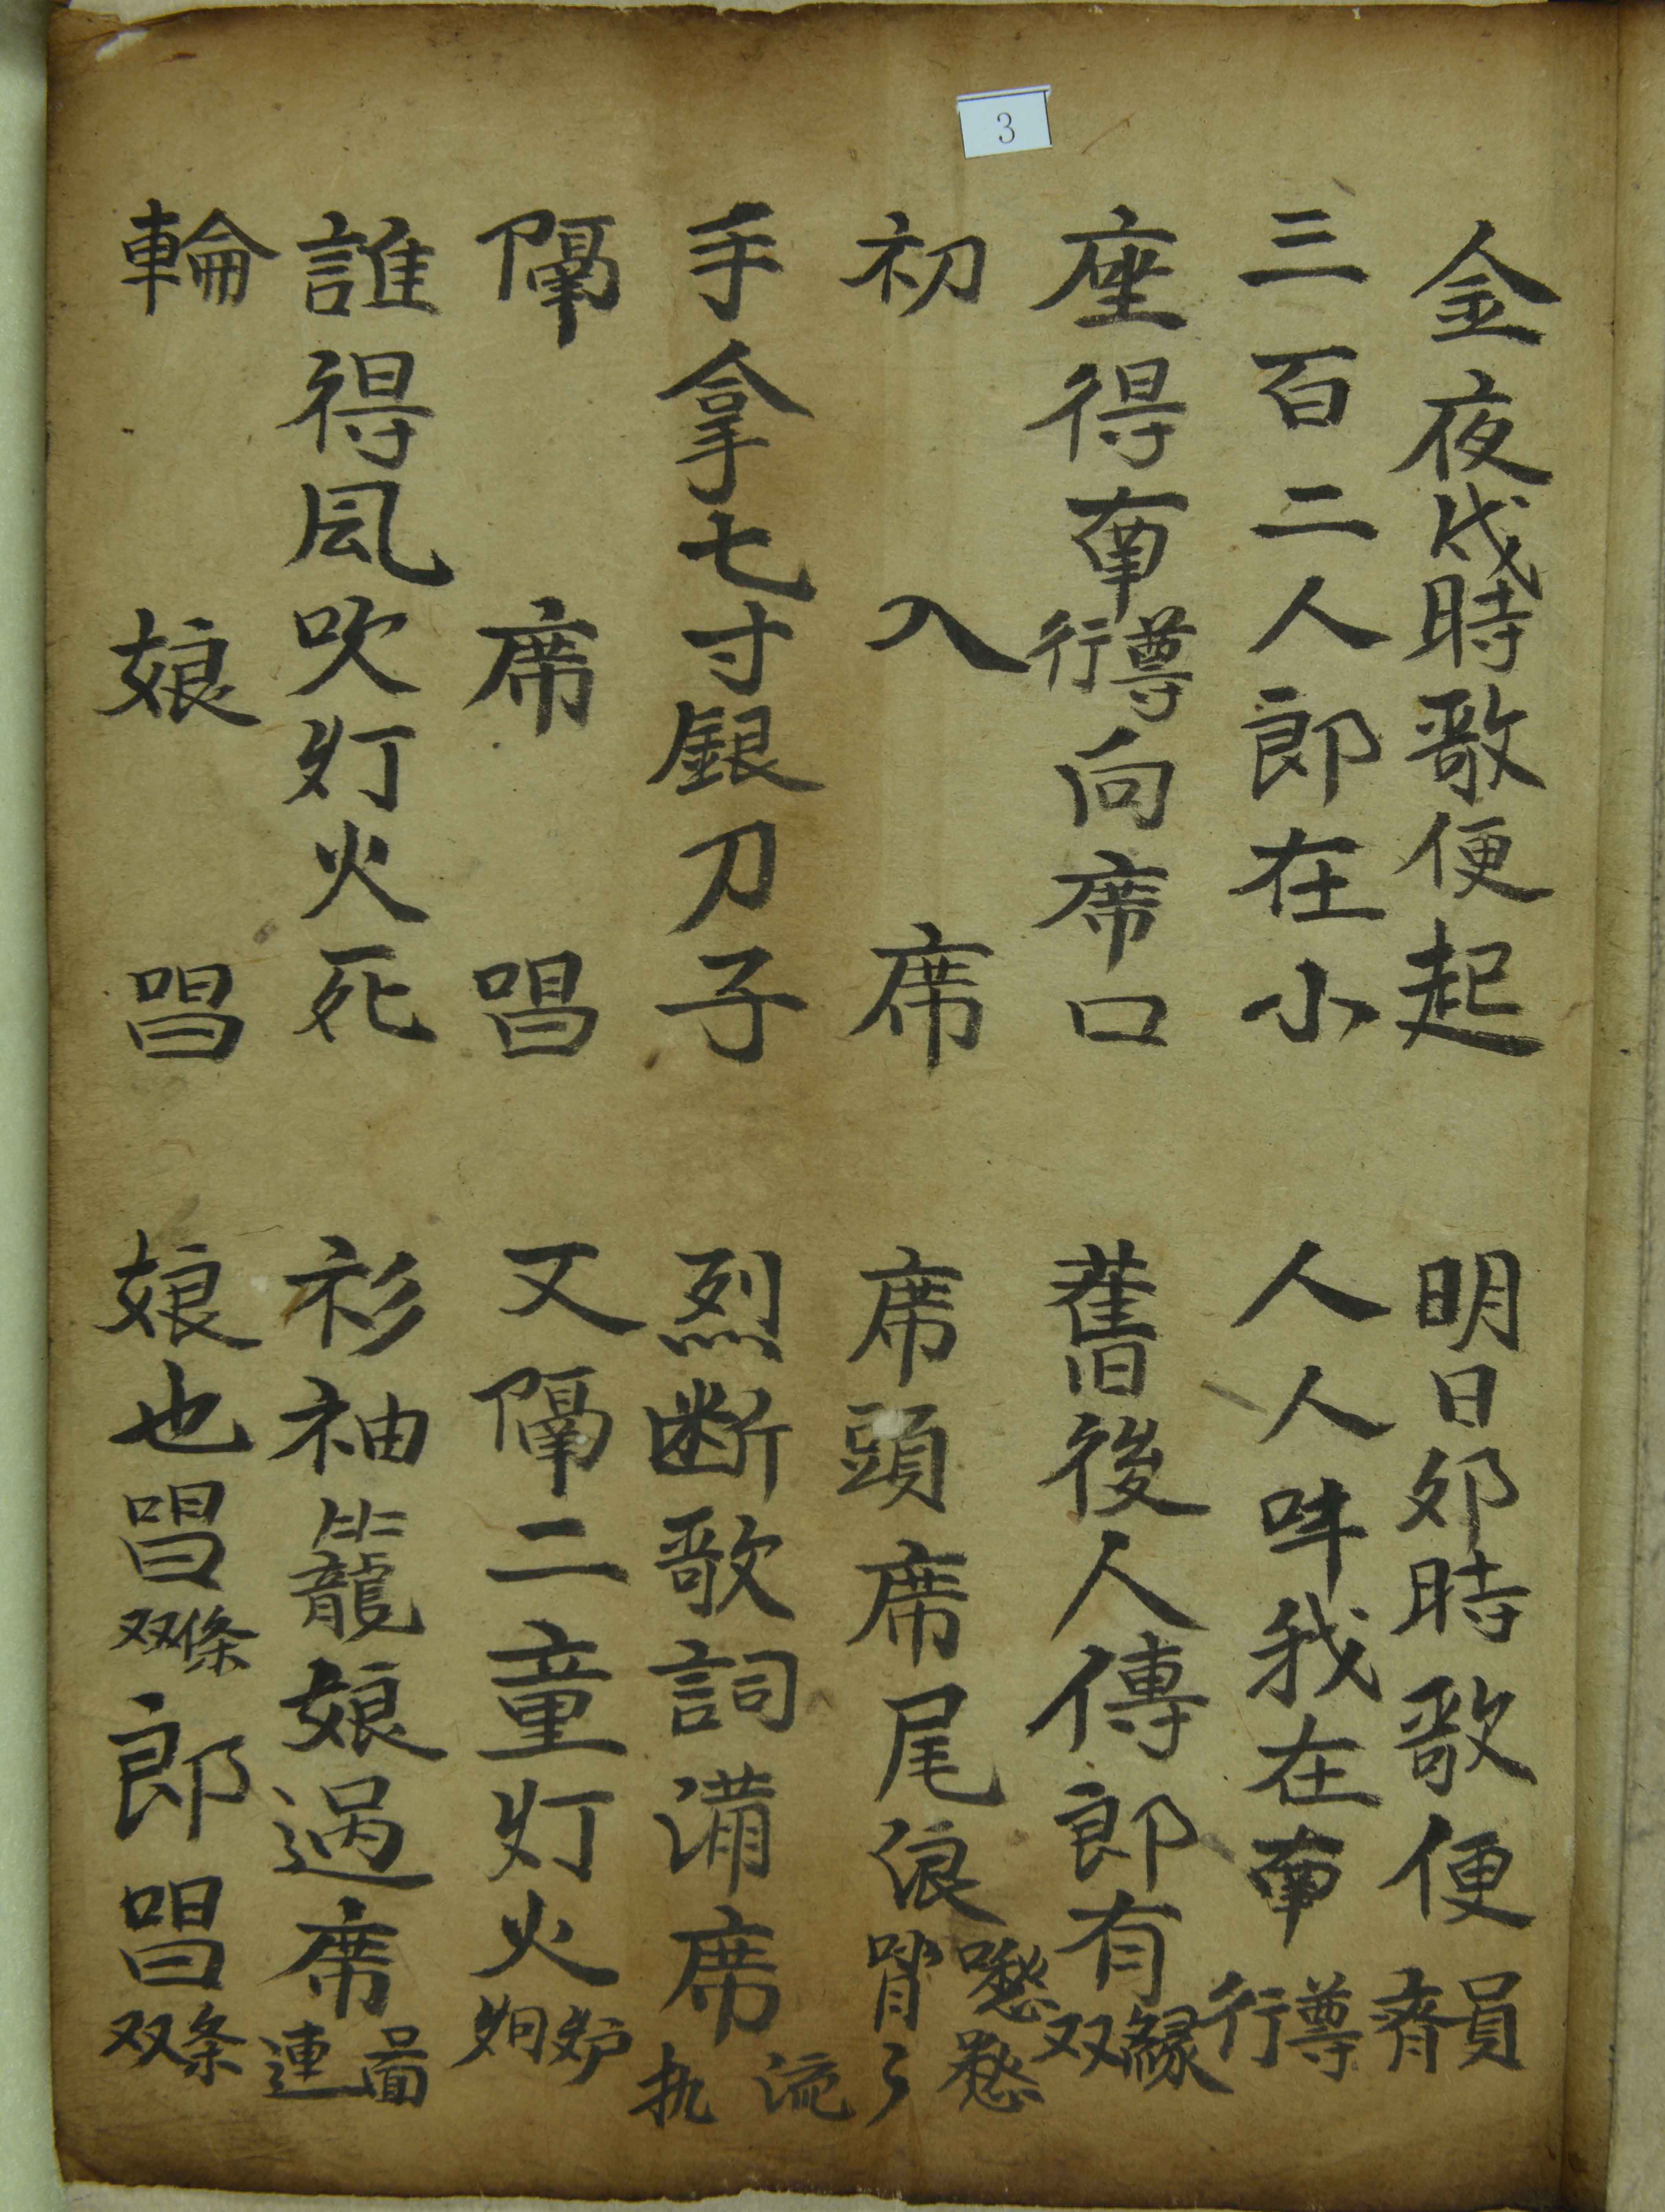 3
金夜戌時歌便起 明日卯時歌便員齊
三百二人郎在小 人人呌我在南尊行
座得南尊行向席口 舊後人傳郎有緣双
初入席 席頭席尾浪愁愁
手拿七寸銀刀子 烈断歌詞满席流执
隔席唱 又隔二童灯火炉烟
誰得風吹灯火死 衫袖籠娘过席啚連
輪娘唱 娘也唱條双郎唱条双